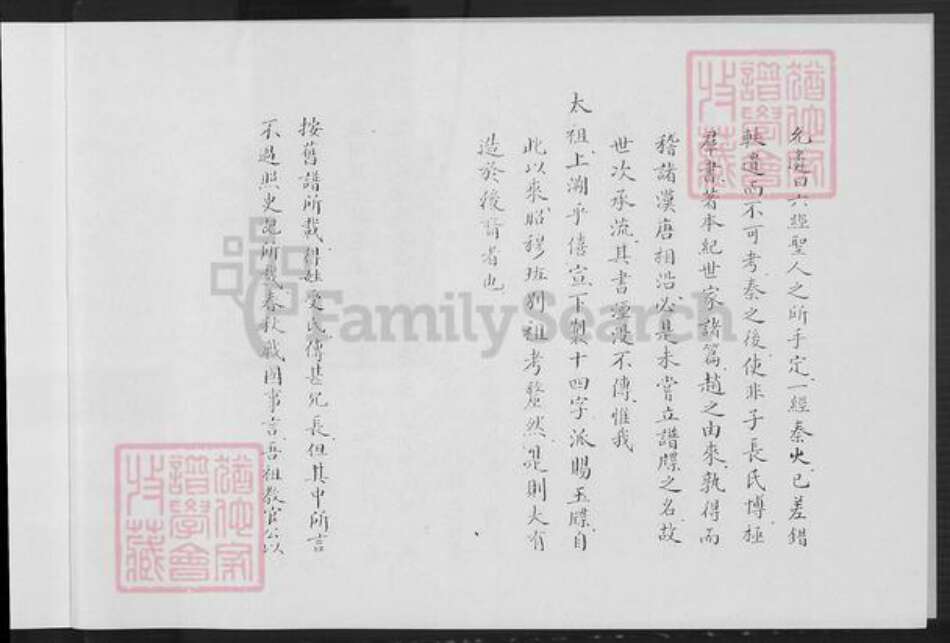 允遴曰六經聖人之所手定一經秦火已差錯
軼遺而不可考秦之後使非子長氏博極
羣書著本紀世家諸篇趙之由來孰得而
稽諸漢唐相沿必是未嘗立譜牒之名故
世次承流其書湮沒不傳惟我
太祖上溯乎僖宣下製十四字派賜玉牒自
此以來昭穆班別祖考釐然是則大有
造於後譜者也
按舊譜所載得姓受氏傳甚冗長但其中所言
不過照史記所載春秋戰國事言吾祖教官公以
FamilySearch
譜學會
收藏
譜學會
收藏